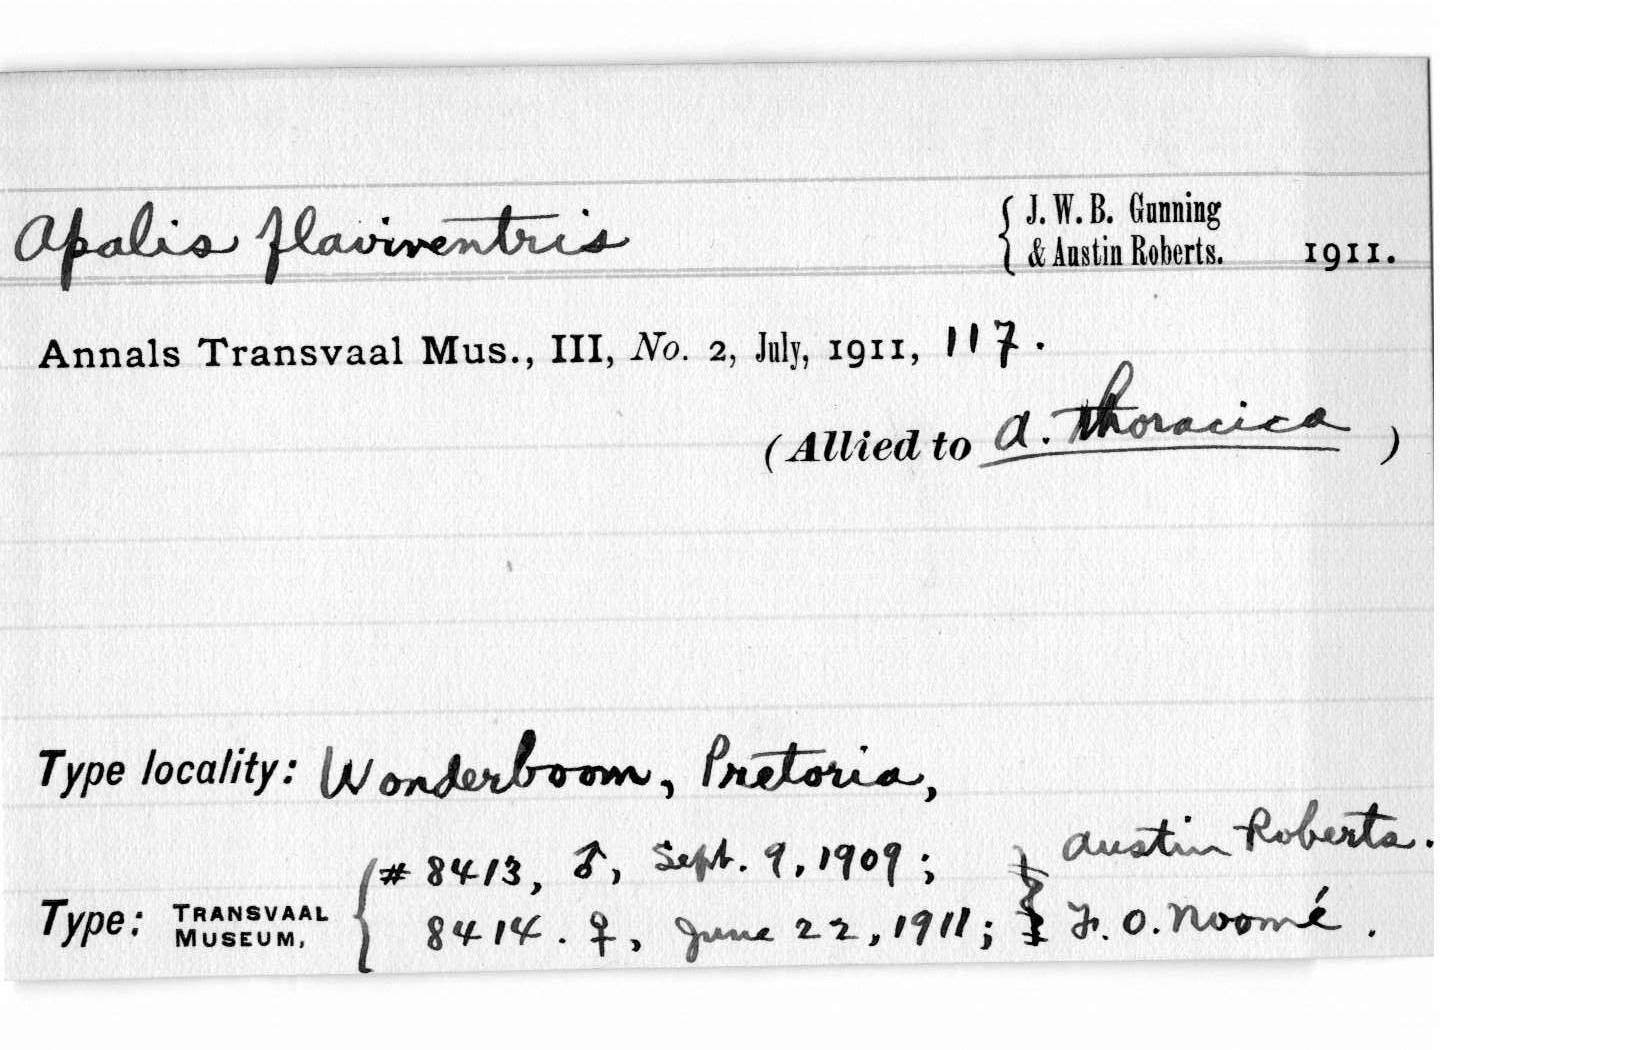 Apalis flaviventris { J. W. B. Gunning
& Austin Roberts. 1911.
Annals Transvaal Mus., III, No. 2, July, 1911, 117.
(Allied to A. thoracica )
Type locality: Wonderboom, Pretoria,
Type: TRANSVAAL MUSEUM, { # 8413, ♂, Sept. 9, 1909; } Austin Roberts.
8414. ♀, June 22, 1911; } F. O. Noomé.